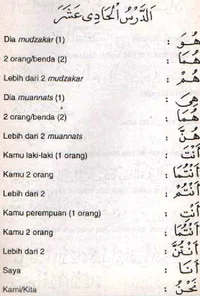 اَلدَّرْسُ الْحَادِى عَشَرَ
Dia mudzakar (1) : هُوَ
2 orang/benda (2) : هُمَا
Lebih dari 2 mudzakar : هُمْ
Dia muannats (1) : هِيَ
2 orang/benda (2) : هُمَا
Lebih dari 2 muannats : هُنَّ
Kamu laki-laki (1 orang) : أَنْتَ
Kamu 2 orang : أَنْتُمَا
Lebih dari 2 : أَنْتُمْ
Kamu perempuan (1 orang) : أَنْتِ
Kamu 2 orang : أَنْتُمَا
Lebih dari 2 : أَنْتُنَّ
Saya : أَنَا
Kami/Kita : نَحْنُ